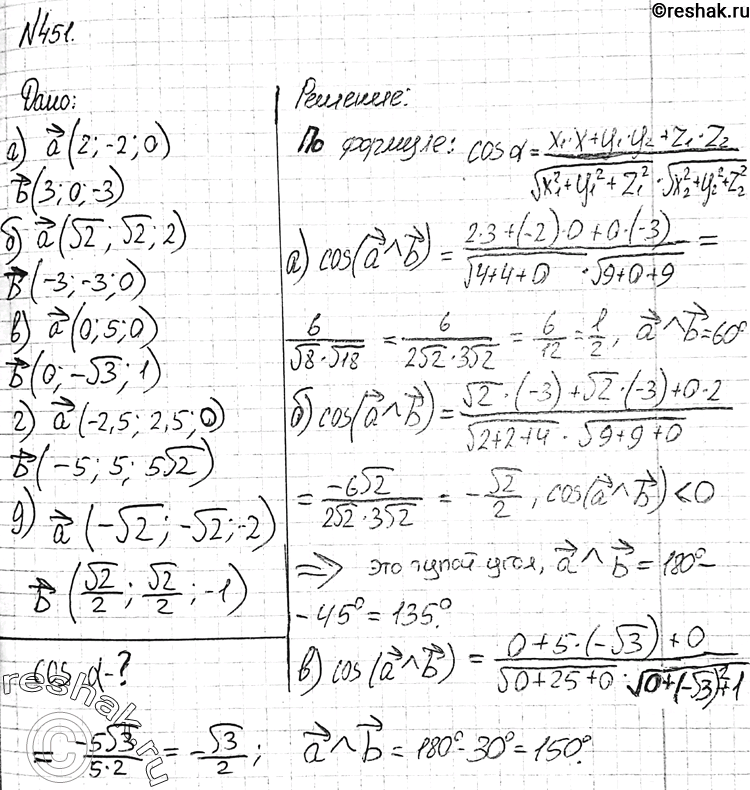 ©reshak.ru
N451.
Дано:
а) a⃗ (2; -2; 0)
b⃗ (3; 0; -3)
б) a⃗ (√2; √2; 2)
b⃗ (-3; -3; 0)
в) a⃗ (0; 5; 0)
b⃗ (0; -√3; 1)
г) a⃗ (-2,5; 2,5; 0)
b⃗ (-5; 5; 5√2)
д) a⃗ (-√2; -√2; -2)
b⃗ (√2/2; √2/2; -1)
cos α-?
Решение:
По формуле: cos α = (x₁·x + y₁·y₂ + z₁·z₂)/(√(x₁²+y₁²+z₁²) · √(x₂²+y₂²+z₂²))
а) cos(a⃗ ^ b⃗) = (2·3+(-2)·0+0·(-3))/(√(4+4+0) · √(9+0+9)) =
6/(√8·√18) = 6/(2√2·3√2) = 6/12 = 1/2, a⃗ ^ b⃗ = 60°
б) cos(a⃗ ^ b⃗) = (√2·(-3)+√2·(-3)+0·2)/(√(2+2+4) · √(9+9+0))
= -6√2/(2√2·3√2) = -√2/2, cos(a⃗ ^ b⃗) < 0
⇒ это тупой угол, a⃗ ^ b⃗ = 180°-
-45° = 135°.
в) cos(a⃗ ^ b⃗) = (0+5·(-√3)+0)/(√(0+25+0) · √(0+(-√3)²+1))
= -5√3/(5·2) = -√3/2; a⃗ ^ b⃗ = 180°-30° = 150°.